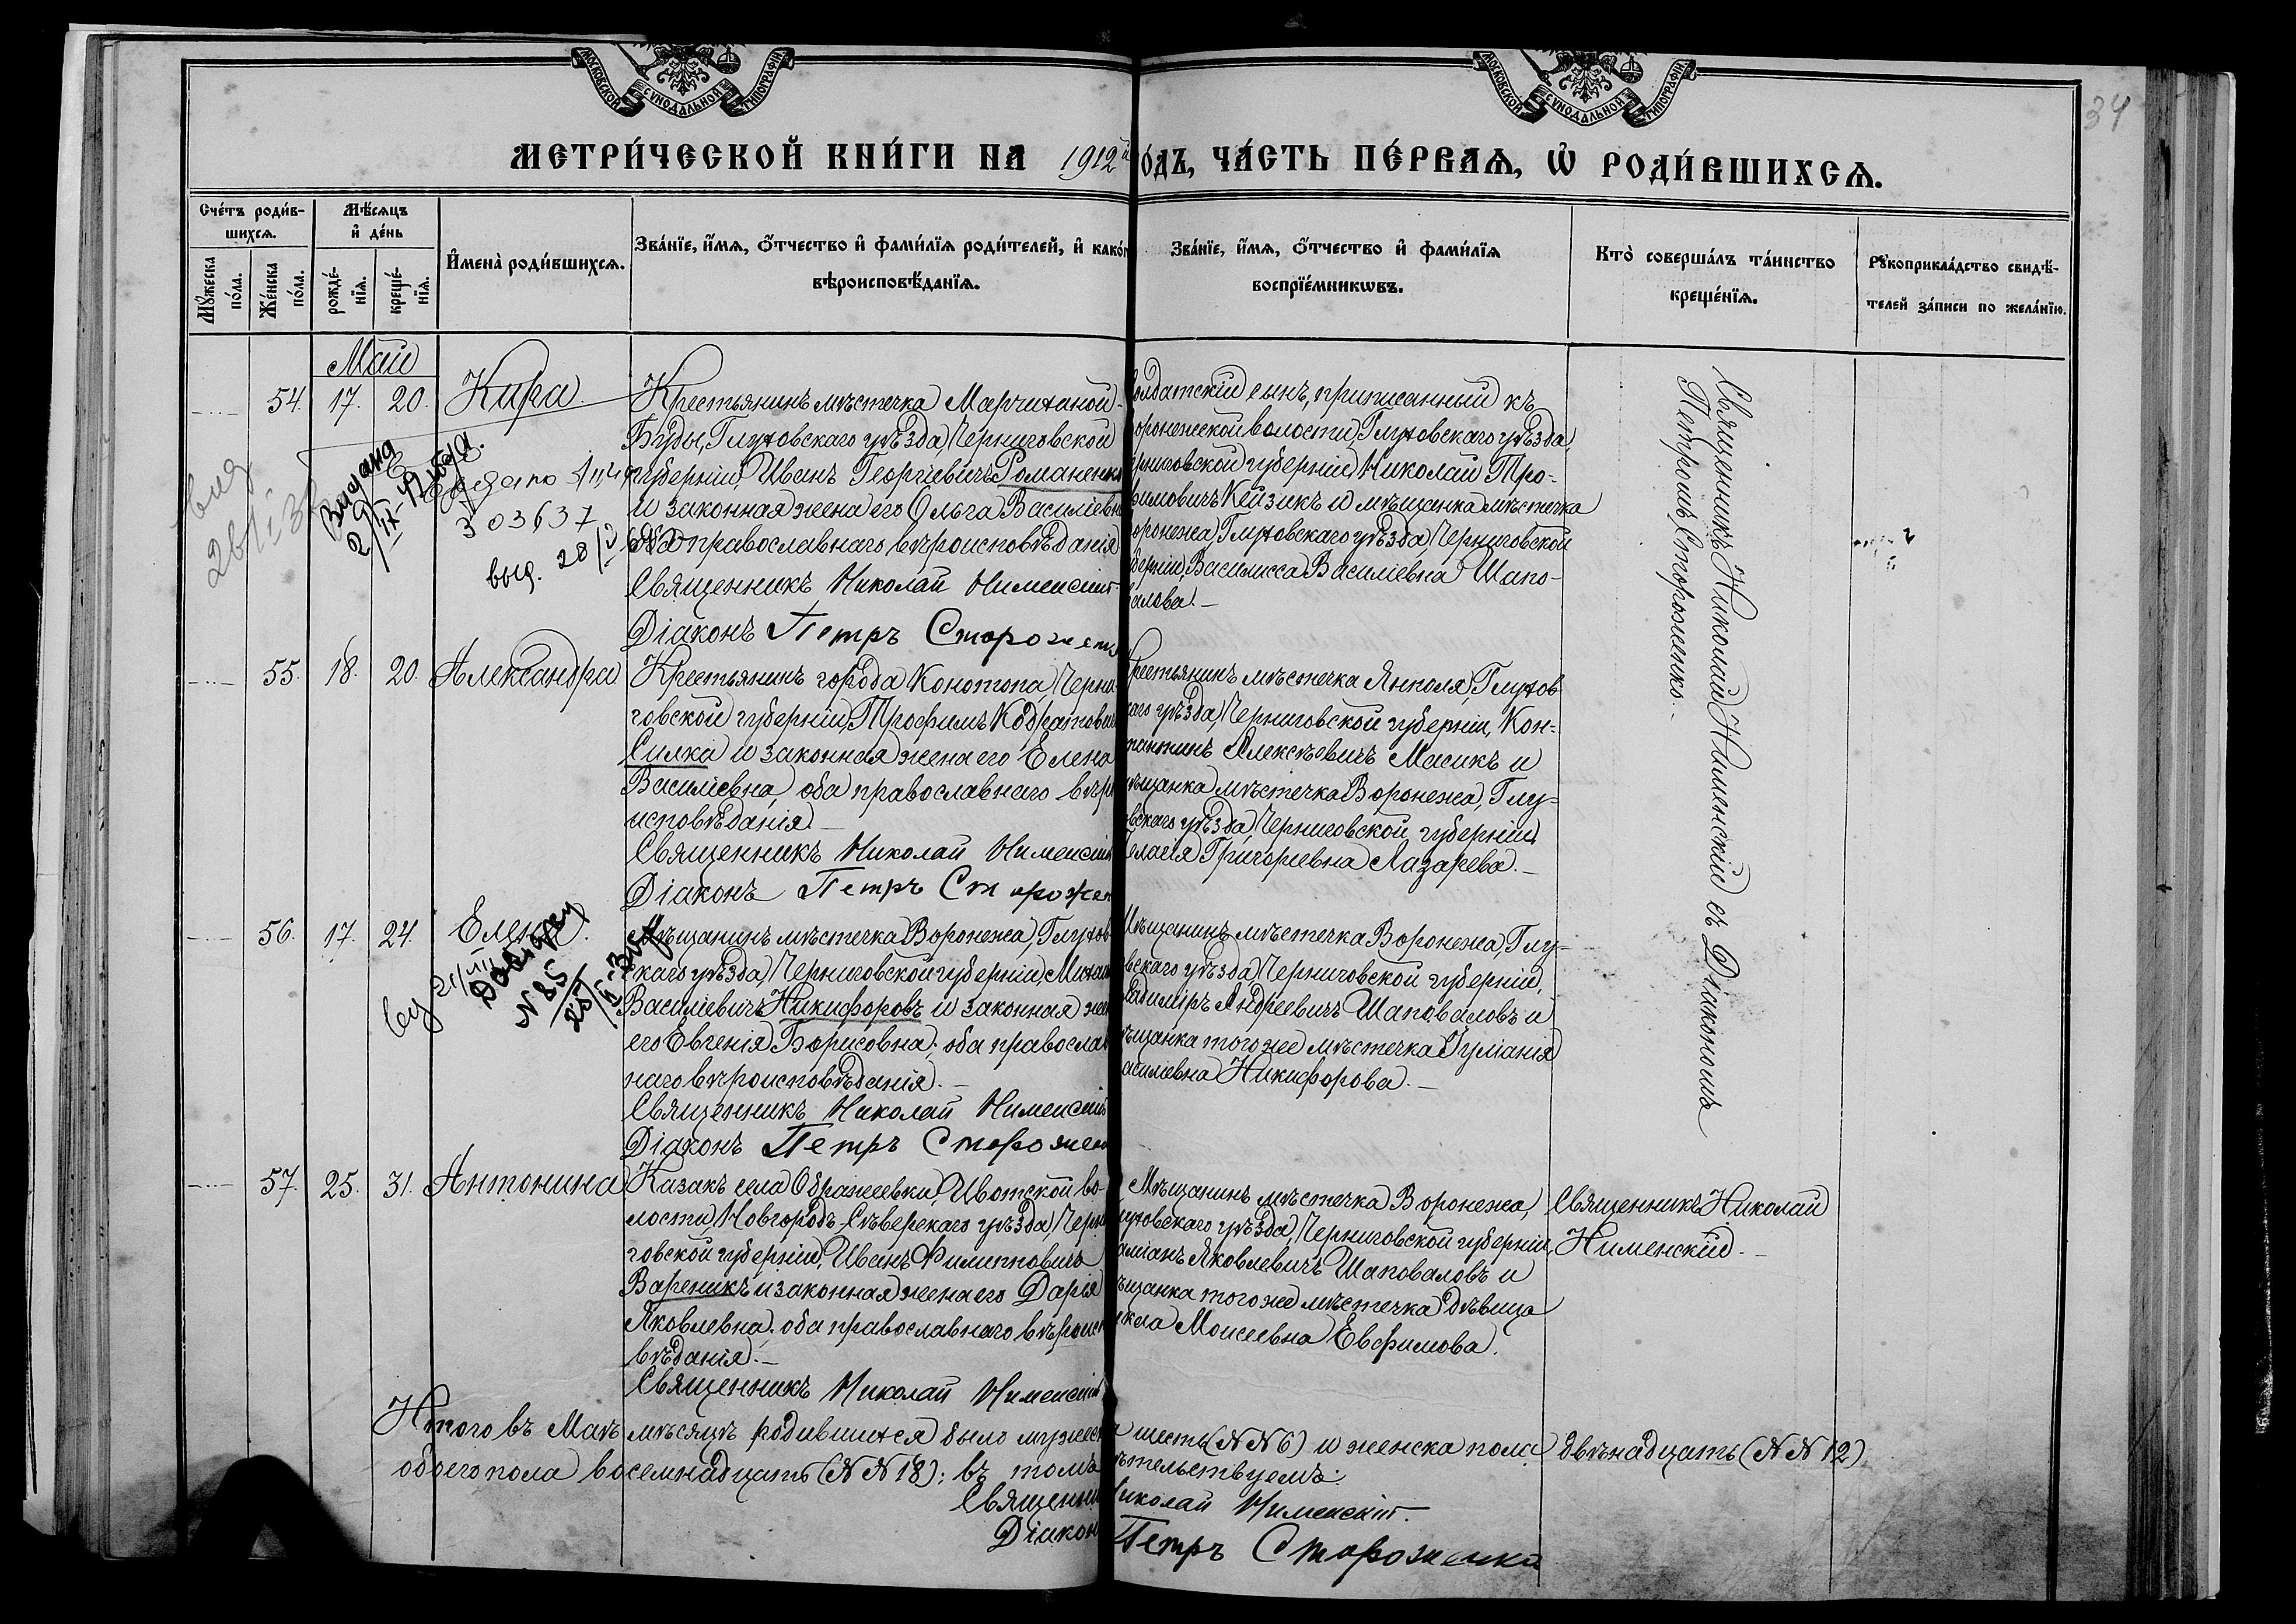 МОСКОВСКОЙ СУНОДАЛЬНОЙ ТИПОГРАФІИ
МОСКОВСКОЙ СУНОДАЛЬНОЙ ТИПОГРАФІИ
34
МЕТРИ́ЧЕСКОЙ КНИ́ГИ НА 1912й
О́ДЪ, ЧА́СТЬ ПЕ́РВАЯ, Ѡ҆ РОДИ́ВШИХСЯ.
Сче́тъ роди́в-
шихся.
Мꙋ́жеска по́ла.
Же́нска по́ла.
Мѣ́сяцъ и҆ де́нь
рожде́-нїя.
креще́-нїя.
И҆мена̀ роди́вшихся.
Зва́нїе, и҆́мя, ѻ҆́тчество и҆ фами́лїя роди́телей, и҆ како́г
вѣроисповѣ́данїя.
Зва́нїе, и҆́мя, ѻ҆́тчество и҆ фами́лїя
воспрїе́мникѡвъ.
Кто̀ соверша́лъ та́инство
креще́нїя.
Рꙋкоприкла́дство свидѣ́-
телей за́писи по жела́нїю.
Май
54. 17. 20. Кира.
Крестьянинъ мѣстечка Марчихиной-
Буды, Глуховскаго уѣзда, Черниговской
губерніи, Иванъ Георгіевичъ Романенк
и законная жена его Ольга Василіевн
оба православнаго вѣроисповѣданія
Священникъ Николай Нименскій
Діаконъ Петръ Стороженк
олдатскій сынъ, приписанный къ
оронежской волости, Глуховскаго уѣзда,
ерниговской губерніи, Николай Тро-
фимовичъ Кейзикъ и мѣщанка мѣстечка
оронежа, Глуховскаго уѣзда, Черниговской
берніи, Василисса Василіевна Шапо-
алова.—
Священникъ Николай Нименскій съ Діакономъ
Петромъ Стороженко.
Видана
2/IX
303637
выд. 28/V
55. 18. 20. Александра
Крестьянинъ города Конотопа, Черни
говской губерніи, Трофимъ Кодратови
Силка и законная жена его Елена
Василіевна, оба православнаго вѣро
исповѣданія.—
Священникъ Николай Нименскій
Діаконъ Петръ Стороже
рестьянинъ мѣстечка Янполя, Глухов
каго уѣзда, Черниговской губерніи, Кон-
тантинъ Алексѣевичъ Масикъ и
мѣщанка мѣстечка Воронежа, Глу-
вскаго уѣзда, Черниговской губерніи
елагія Григоріевна Лазарева.—
56. 17. 24. Елена.
21/III
N 85
Мѣщанинъ мѣстечка Воронежа, Глухов
скаго уѣзда, Черниговской губерніи, Михаи
Василіевичъ Никифоровъ и законная жен
его Евгенія Борисовна; оба правосла
наго вѣроисповѣданія.—
Священникъ Николай Нименскій
Діаконъ Петръ Стороже
Мѣщанинъ мѣстечка Воронежа, Глу-
вскаго уѣзда, Черниговской губерніи,
ладиміръ Андреевичъ Шаповаловъ и
ѣщанка того же мѣстечка Іуліанія
асиліевна Никифорова.—
57. 25. 31. Антонина
Казакъ села Ображеевки, Ивотской во-
лости, Новгородъ-Сѣверскаго уѣзда, Черни
говской губерніи, Иванъ Филипповичъ
Вареникъ и законная жена его Дарія
Яковлевна, оба православнаго вѣроисп
вѣданія.—
Священникъ Николай Нименскій
Мѣщанинъ мѣстечка Воронежа,
луховскаго уѣзда, Черниговской губерніи,
аміанъ Яковлевичъ Шаповаловъ и
ѣщанка того же мѣстечка дѣвица
кла Моисеевна Евфимова.
Священникъ Николай
Нименскій.—
Итого въ Маѣ мѣсяцѣ родившихся было мужеск
а шесть (NN 6) и женска пола двѣнадцать (NN 12)
обоего пола восемнадцать (NN 18); въ томъ
ѣтельствуемъ:
Священни
иколай Нименскій.
Діакон
Петръ Стороженко